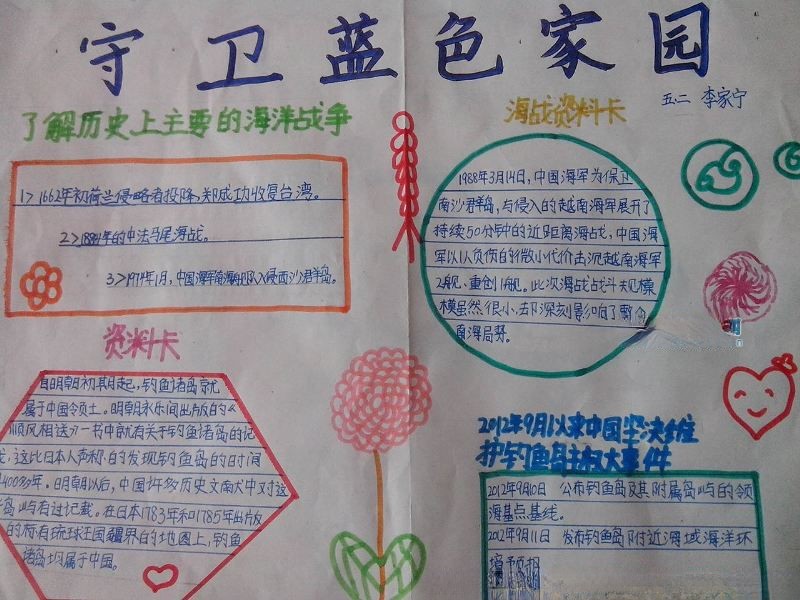 守卫蓝色家园
五.二 李家宁
了解历史上主要的海洋战争
1> 1662年初荷兰侵略者投降,郑成功收复台湾。
2> 1884年的中法马尾海战。
3> 1974年1月,中国海军南海舰队入侵西沙群岛。
资料卡
自明朝初期起,钓鱼诸岛就
属于中国领土。明朝永乐间出版的《
顺风相送》一书中就有关于钓鱼诸岛的记
这比日本人声称的发现钓鱼岛的时间
400多年。明朝以后,中国许多历史文献大中对这
岛屿有过记载。在日本1783年和1785年出版
的标有琉球王国疆界的地图上,钓鱼
诸岛坝属于中国。
海战资料卡
1988年3月14日,中国海军为保卫
南沙君羊岛,与侵入的越南海军展开了
持续50分钟的近距离海战,中国海
军以1人负伤的微小代价击沉越南海军
2舰、重创1舰。此次海战战斗规模
模虽然很小,却深刻影响了
南海局势。
2012年9月以来中国坚决维
护钓鱼岛主权大事件
2012年9月10日 公布钓鱼岛及其附属岛屿的领
海基点基线。
2012年9月11日 发布钓鱼岛附近海域海洋环
境预报